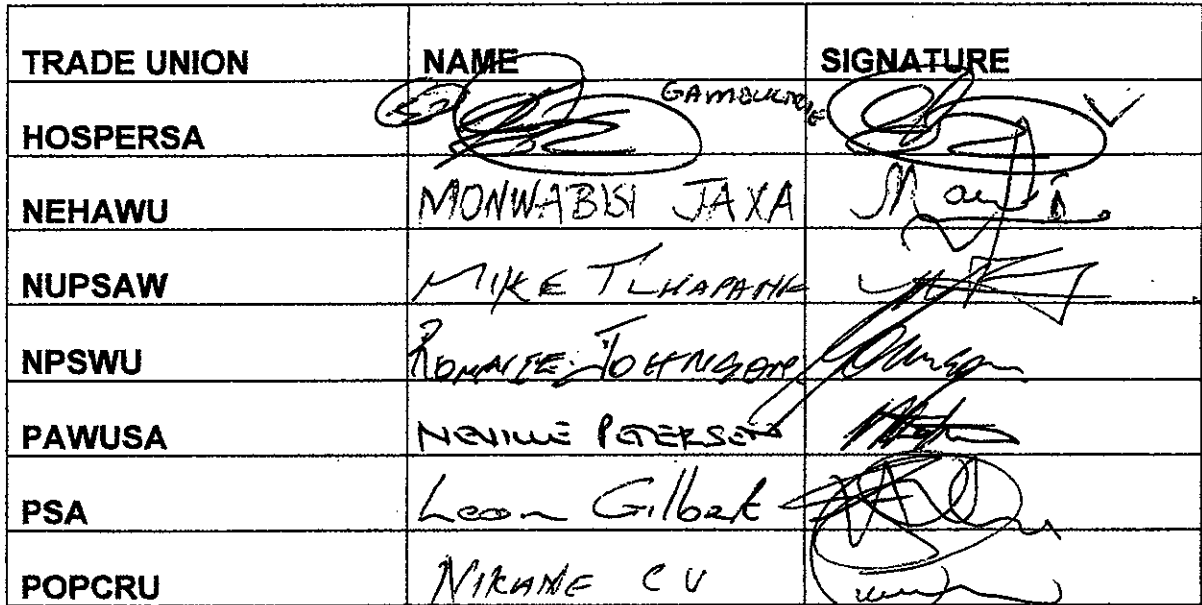 TRADE UNION NAME SIGNATURE
HOSPERSA
NEHAWU MONWABISI JAXA
NUPSAW MIKE
NPSWU RONNIE JOHNSON
PAWUSA NEVILLE PETERSEN
PSA Leon Gilbert
POPCRU C V